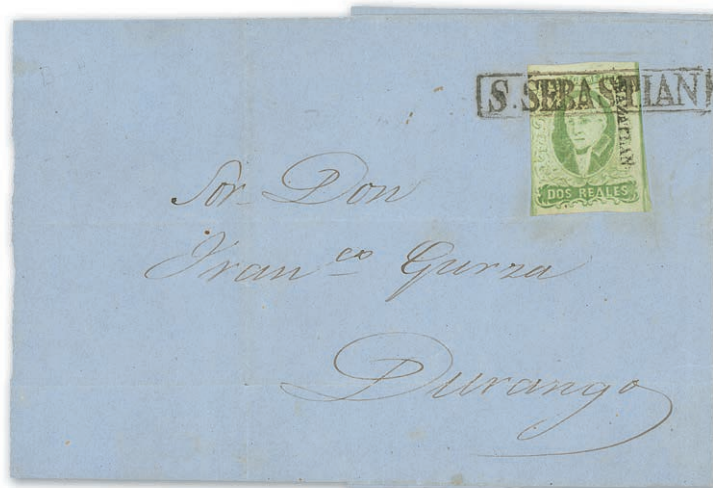 S. SEBASTIAN
MAZATLAN
DOS REALES
Sor Don
Franco Gurza
Durango